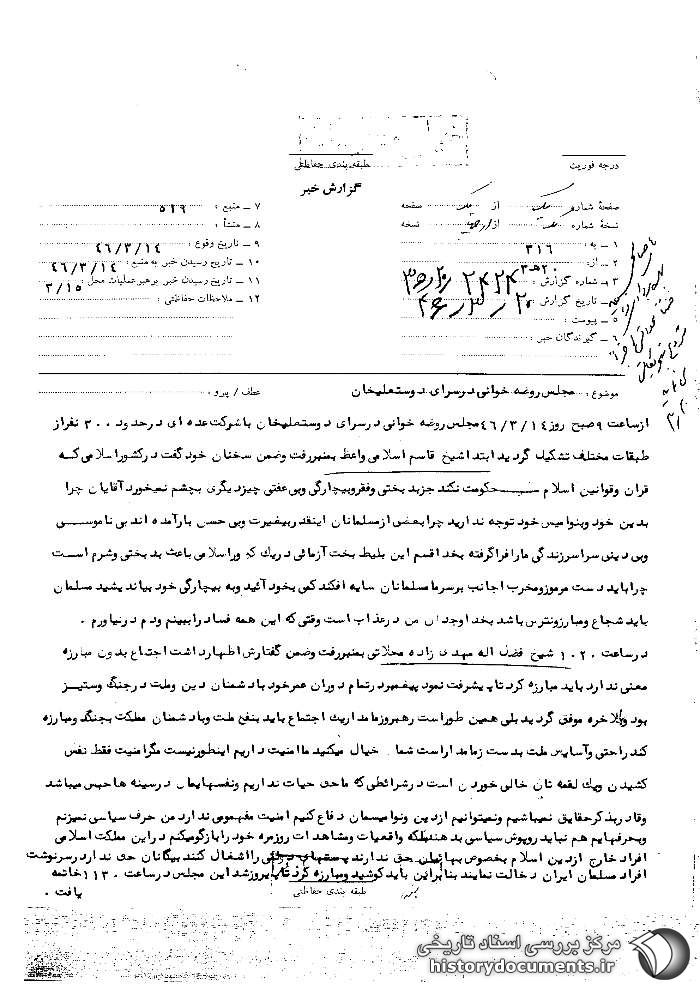 طبقه بندی حفاظتی
درجه فوریت
گزارش خبر
صفحهٔ شماره یک از یک صفحه
نسخهٔ شماره از نسخه
۱ ـ به : ۳۱۶
۲ ـ از : ۲۰ ه‍ ۳
۳ ـ شماره گزارش :
۴ ـ تاریخ گزارش :
۵ ـ پیوست :
۶ ـ گیرندگان خبر :
۷ ـ منبع : ۵۱۹
۸ ـ منشأ :
۹ ـ تاریخ وقوع : ۴۶/۳/۱۴
۱۰ ـ تاریخ رسیدن خبر به منبع : ۴۶/۳/۱۴
۱۱ ـ تاریخ رسیدن خبر برهبر عملیات محل : ۳/۱۵
۱۲ ـ ملاحظات حفاظتی :
موضوع : مجلس روضه خوانی در سرای دوستعلیخان
عطف / پیرو :
از ساعت ۹ صبح روز ۴۶/۳/۱۴ مجلس روضه خوانی در سرای دوستعلیخان با شرکت عده ای در حدود ۳۰۰ نفر از
طبقات مختلف تشکیل گردید ابتدا شیخ قاسم اسلامی واعظ بمنبر رفت و ضمن سخنان خود گفت در کشور اسلامی که
قران و قوانین اسلام حکومت نکند جز بد بختی و فقر و بیچارگی و بی عفتی چیز دیگری بچشم نمیخورد آقایان چرا
بدین خود و بنوامیس خود توجه ندارید چرا بعضی از مسلمانان اینقدر بیغیرت و بی حس بارآمده اند بی ناموسی
و بی دینی سراسر زندگی ما را فرا گرفته بخدا قسم این بلیط بخت آزمائی در یک کشور اسلامی باعث بد بختی و شرم است
چرا باید دست مرموز و مخرب اجانب بر سر ما مسلمانان سایه افکند کمی بخود آئید و به بیچارگی خود بیاندیشید مسلمان
باید شجاع و مبارز و نترس باشد بخدا وجدان من در عذاب است وقتی که این همه فساد را ببینم و دم در نیاورم .
در ساعت ۱۰۲۰ شیخ فضل اله مهدی زاده محلاتی بمنبر رفت و ضمن گفتارش اظهار داشت اجتماع بدون مبارزه
معنی ندارد باید مبارزه کرد تا پیشرفت نمود پیغمبر در تمام دوران عمر خود با دشمنان دین و ملت در جنگ و ستیز
بود و بالاخره موفق گردید بلی همین طور است رهبر و زمامدار یک اجتماع باید بنفع ملت و با دشمنان مملکت بجنگد و مبارزه
کند راحتی و آسایس ملت بدست زمامدار است شما . خیال میکنید ما امنیت داریم اینطور نیست مگر امنیت فقط نفس
کشیدن و یک لقمه نان خالی خوردن است در شرائطی که ما حق حیات نداریم و نفسهایمان در سینه ها حبس میباشد
و قادر بذکر حقایق نمیباشیم و نمیتوانیم از دین و نوامیسمان دفاع کنیم امنیت مفهومی ندارد من حرف سیاسی نمیزنم
و بحرفهایم هم نباید روپوش سیاسی بدهند بلکه واقعیات و مشاهدات روزمره خود را بازگو میکنم در این مملکت اسلامی
افراد خارج از دین اسلام بخصوص بهائیان حق ندارند پستهای دولتی را اشغال کنند بیگانان حق ندارد سرنوشت
افراد مسلمان ایران دخالت نمایند بنابراین باید کوشید و مبارزه کرد تا پیروز شد این مجلس در ساعت ۱۱۳۰ خاتمه
یافت .
طبقه بندی حفاظتی
مرکز بررسی اسناد تاریخی
historydocuments.ir